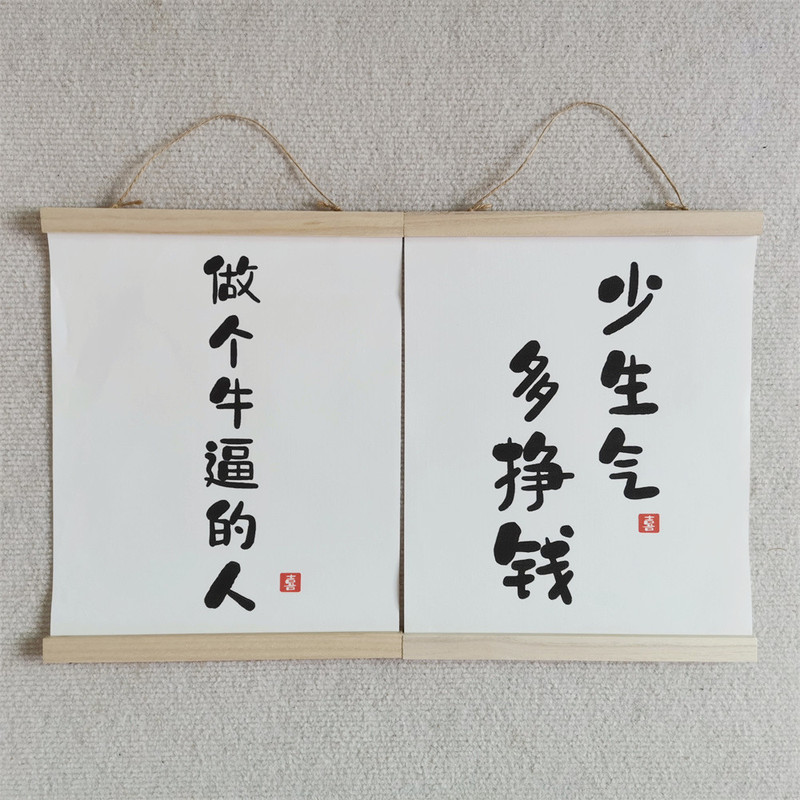 做个牛逼的人
喜
少生气
多挣钱
喜